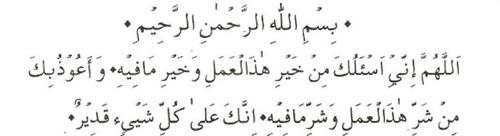 • بِسْمِ اللّٰهِ الرَّحْمٰنِ الرَّحِيْمِ •
اَللّٰهُمَّ اِنِّيْ اَسْئَلُكَ مِنْ خَيْرِ هٰذَالْعَمَلِ وَخَيْرِ مَافِيْهِ • وَ اَعُوْذُ بِكَ
مِنْ شَرِّ هٰذَالْعَمَلِ وَشَرِّ مَافِيْهِ • اِنَّكَ عَلىٰ كُلِّ شَيْىءٍ قَدِيْرٌ •